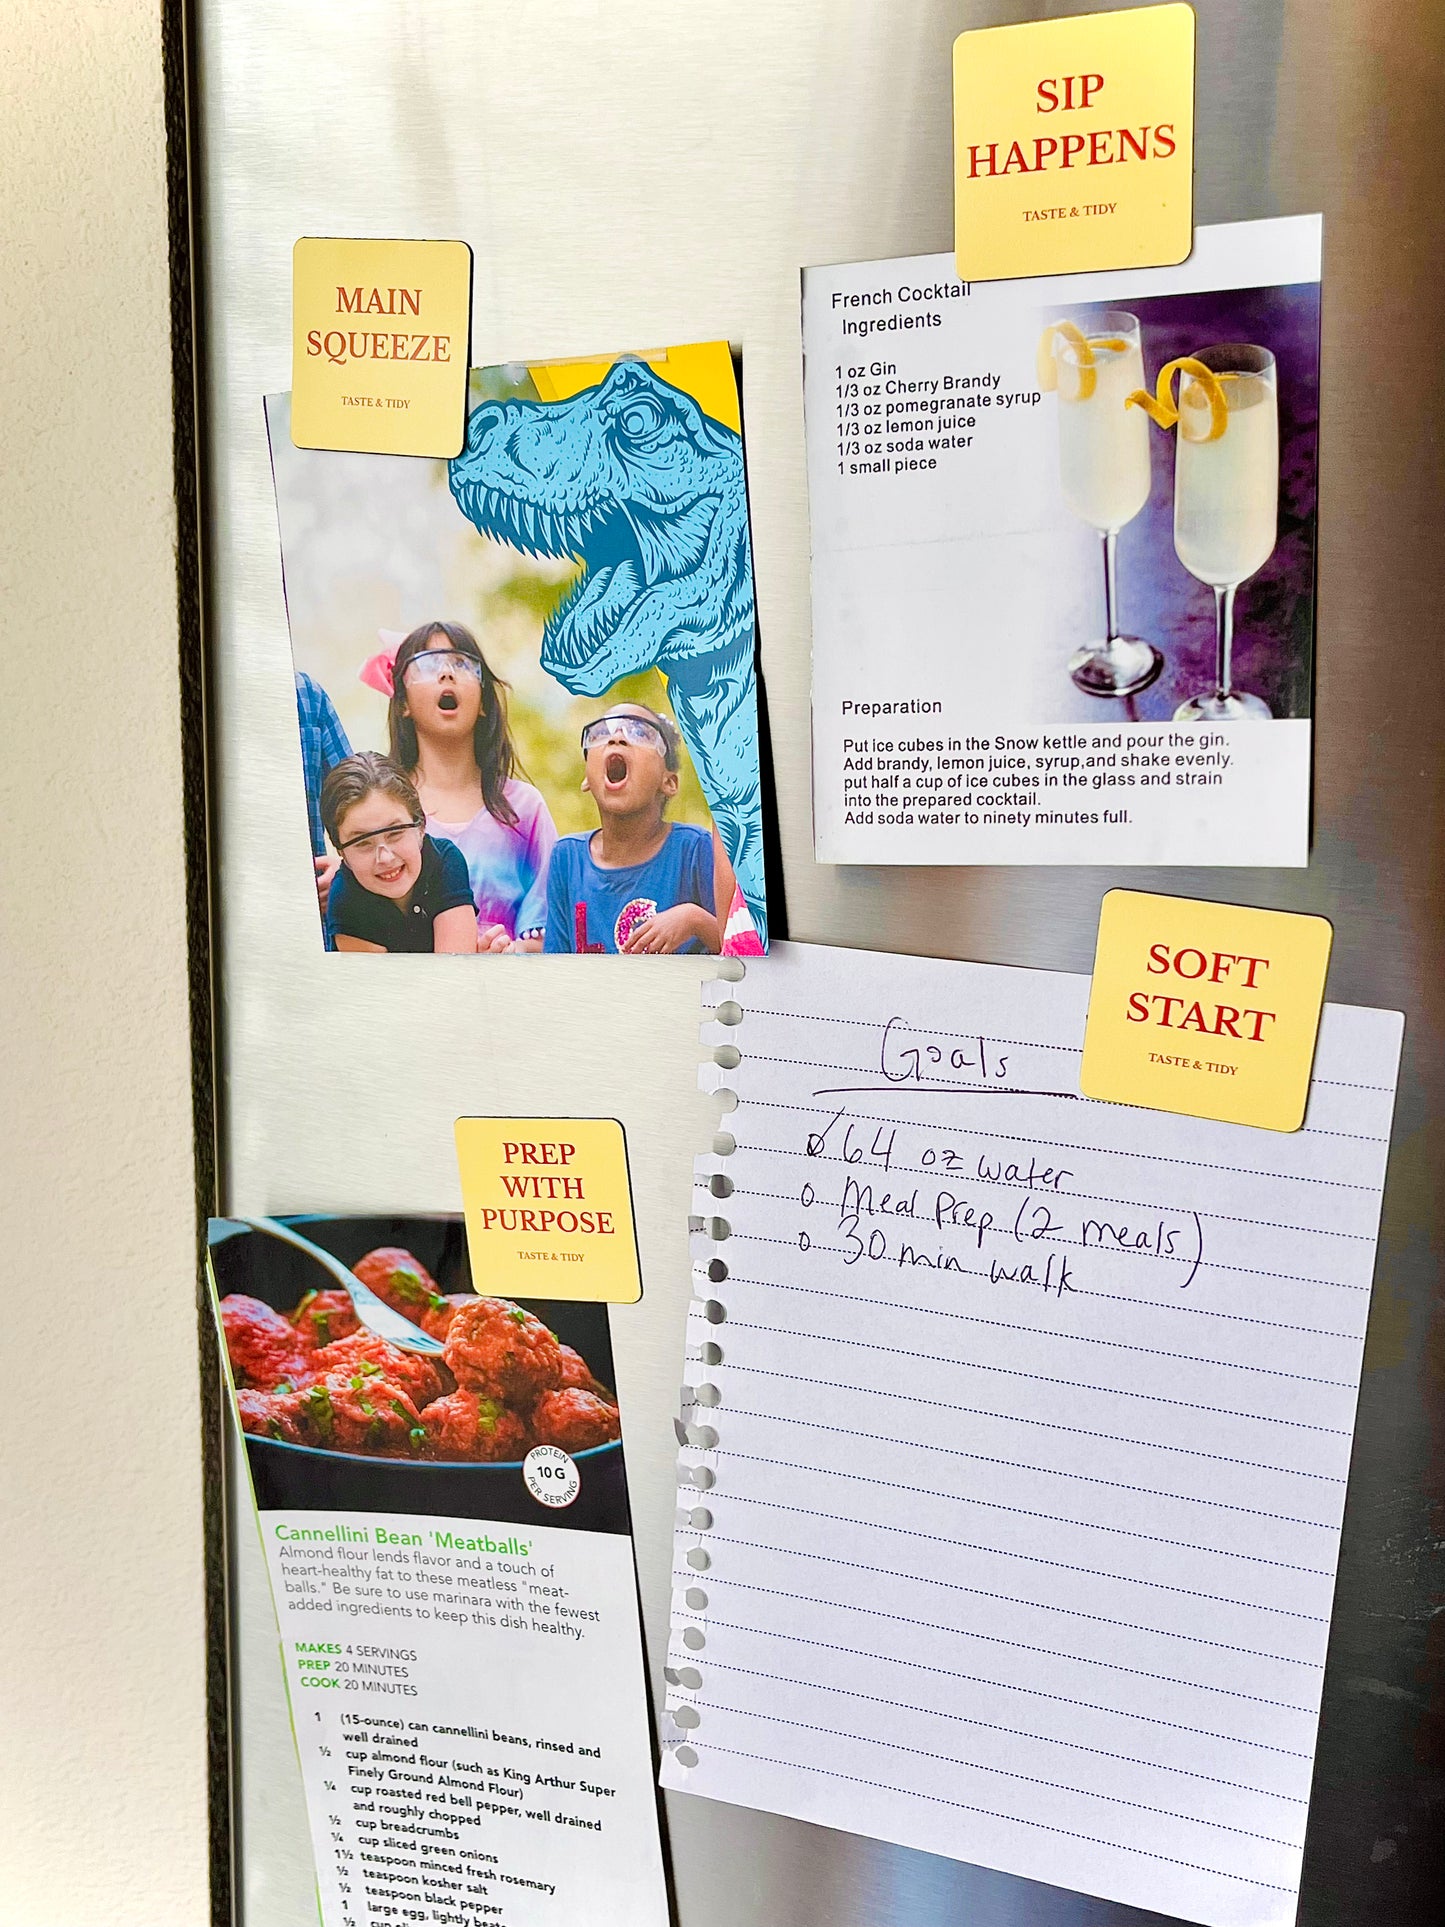 SIP
HAPPENS
TASTE & TIDY
MAIN
SQUEEZE
TASTE & TIDY
French Cocktail
Ingredients
1 oz Gin
1/3 oz Cherry Brandy
1/3 oz pomegranate syrup
1/3 oz lemon juice
1/3 oz soda water
1 small piece
Preparation
Put ice cubes in the Snow kettle and pour the gin.
Add brandy, lemon juice, syrup,and shake evenly.
put half a cup of ice cubes in the glass and strain
into the prepared cocktail.
Add soda water to ninety minutes full.
SOFT
START
TASTE & TIDY
Goals
64 oz water
Meal Prep (2 meals)
30 min walk
PREP
WITH
PURPOSE
TASTE & TIDY
PROTEIN
10 G
PER SERVING
Cannellini Bean 'Meatballs'
Almond flour lends flavor and a touch of
heart-healthy fat to these meatless "meat-
balls." Be sure to use marinara with the fewest
added ingredients to keep this dish healthy.
MAKES 4 SERVINGS
PREP 20 MINUTES
COOK 20 MINUTES
1 (15-ounce) can cannellini beans, rinsed and
well drained
½ cup almond flour (such as King Arthur Super
Finely Ground Almond Flour)
¼ cup roasted red bell pepper, well drained
and roughly chopped
½ cup breadcrumbs
¼ cup sliced green onions
1½ teaspoon minced fresh rosemary
½ teaspoon kosher salt
½ teaspoon black pepper
1 large egg, lightly
½ cup